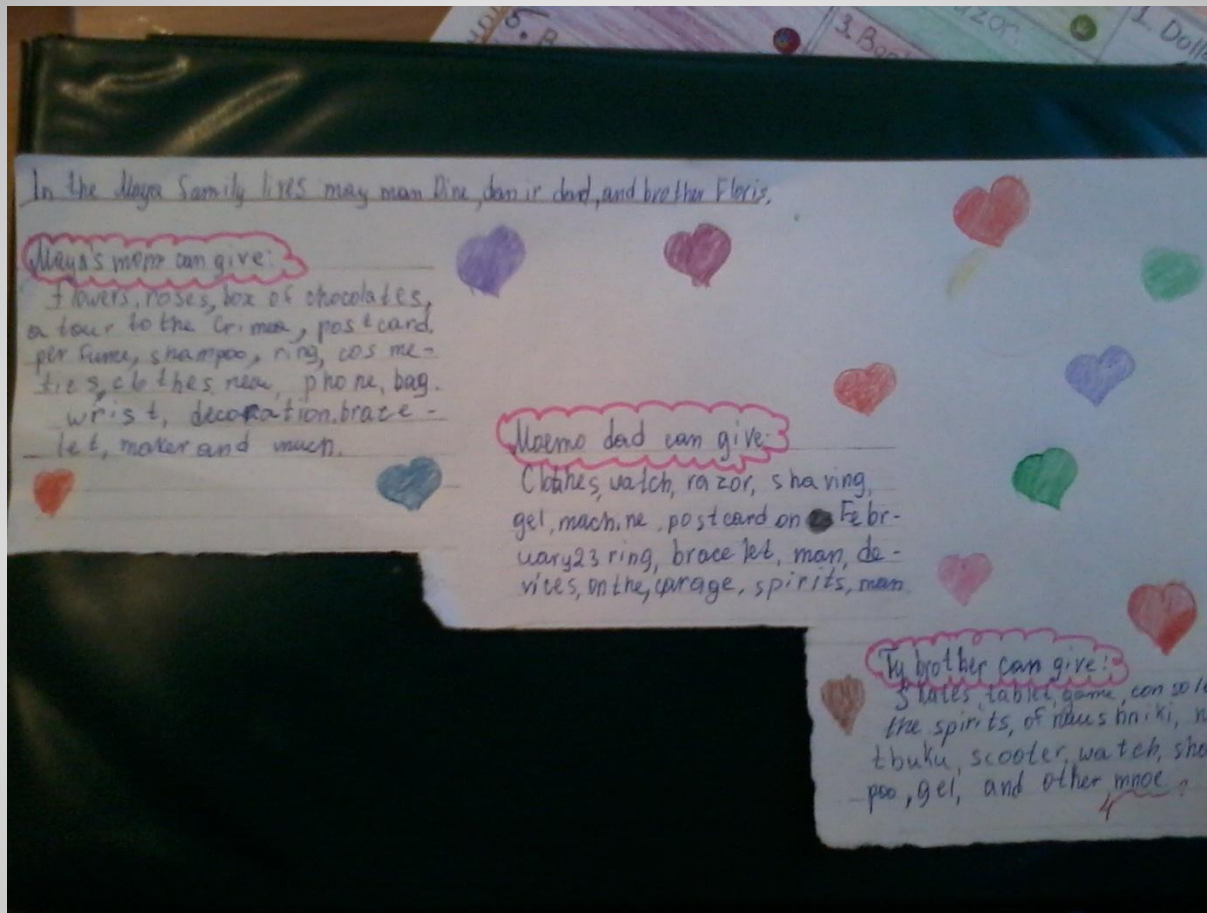 5. B
3. Boo
azor.
1. Doll
In the Maya Family lives may man Dine, dan ir dad, and brother Floris.
Maya's mom can give:
Flowers, roses, box of chocolates,
a tour to the Crimea, postcard,
per fume, shampoo, ring, cos me-
tics, clothes, new phone, bag.
wrist, decoration. brace-
let, maker and much.
Moemo dad can give:
Clothes, watch, razor, shaving,
gel, machine, postcard on Febr-
uary 23 ring, brace let, man, de-
vices, on the, garage, spirits, man
Ty brother can give:
Skates, tablet, game, consol
the spirits, of naushniki, n
tbuku, scooter, watch, sha
poo, gel, and other mnoe
4 ?